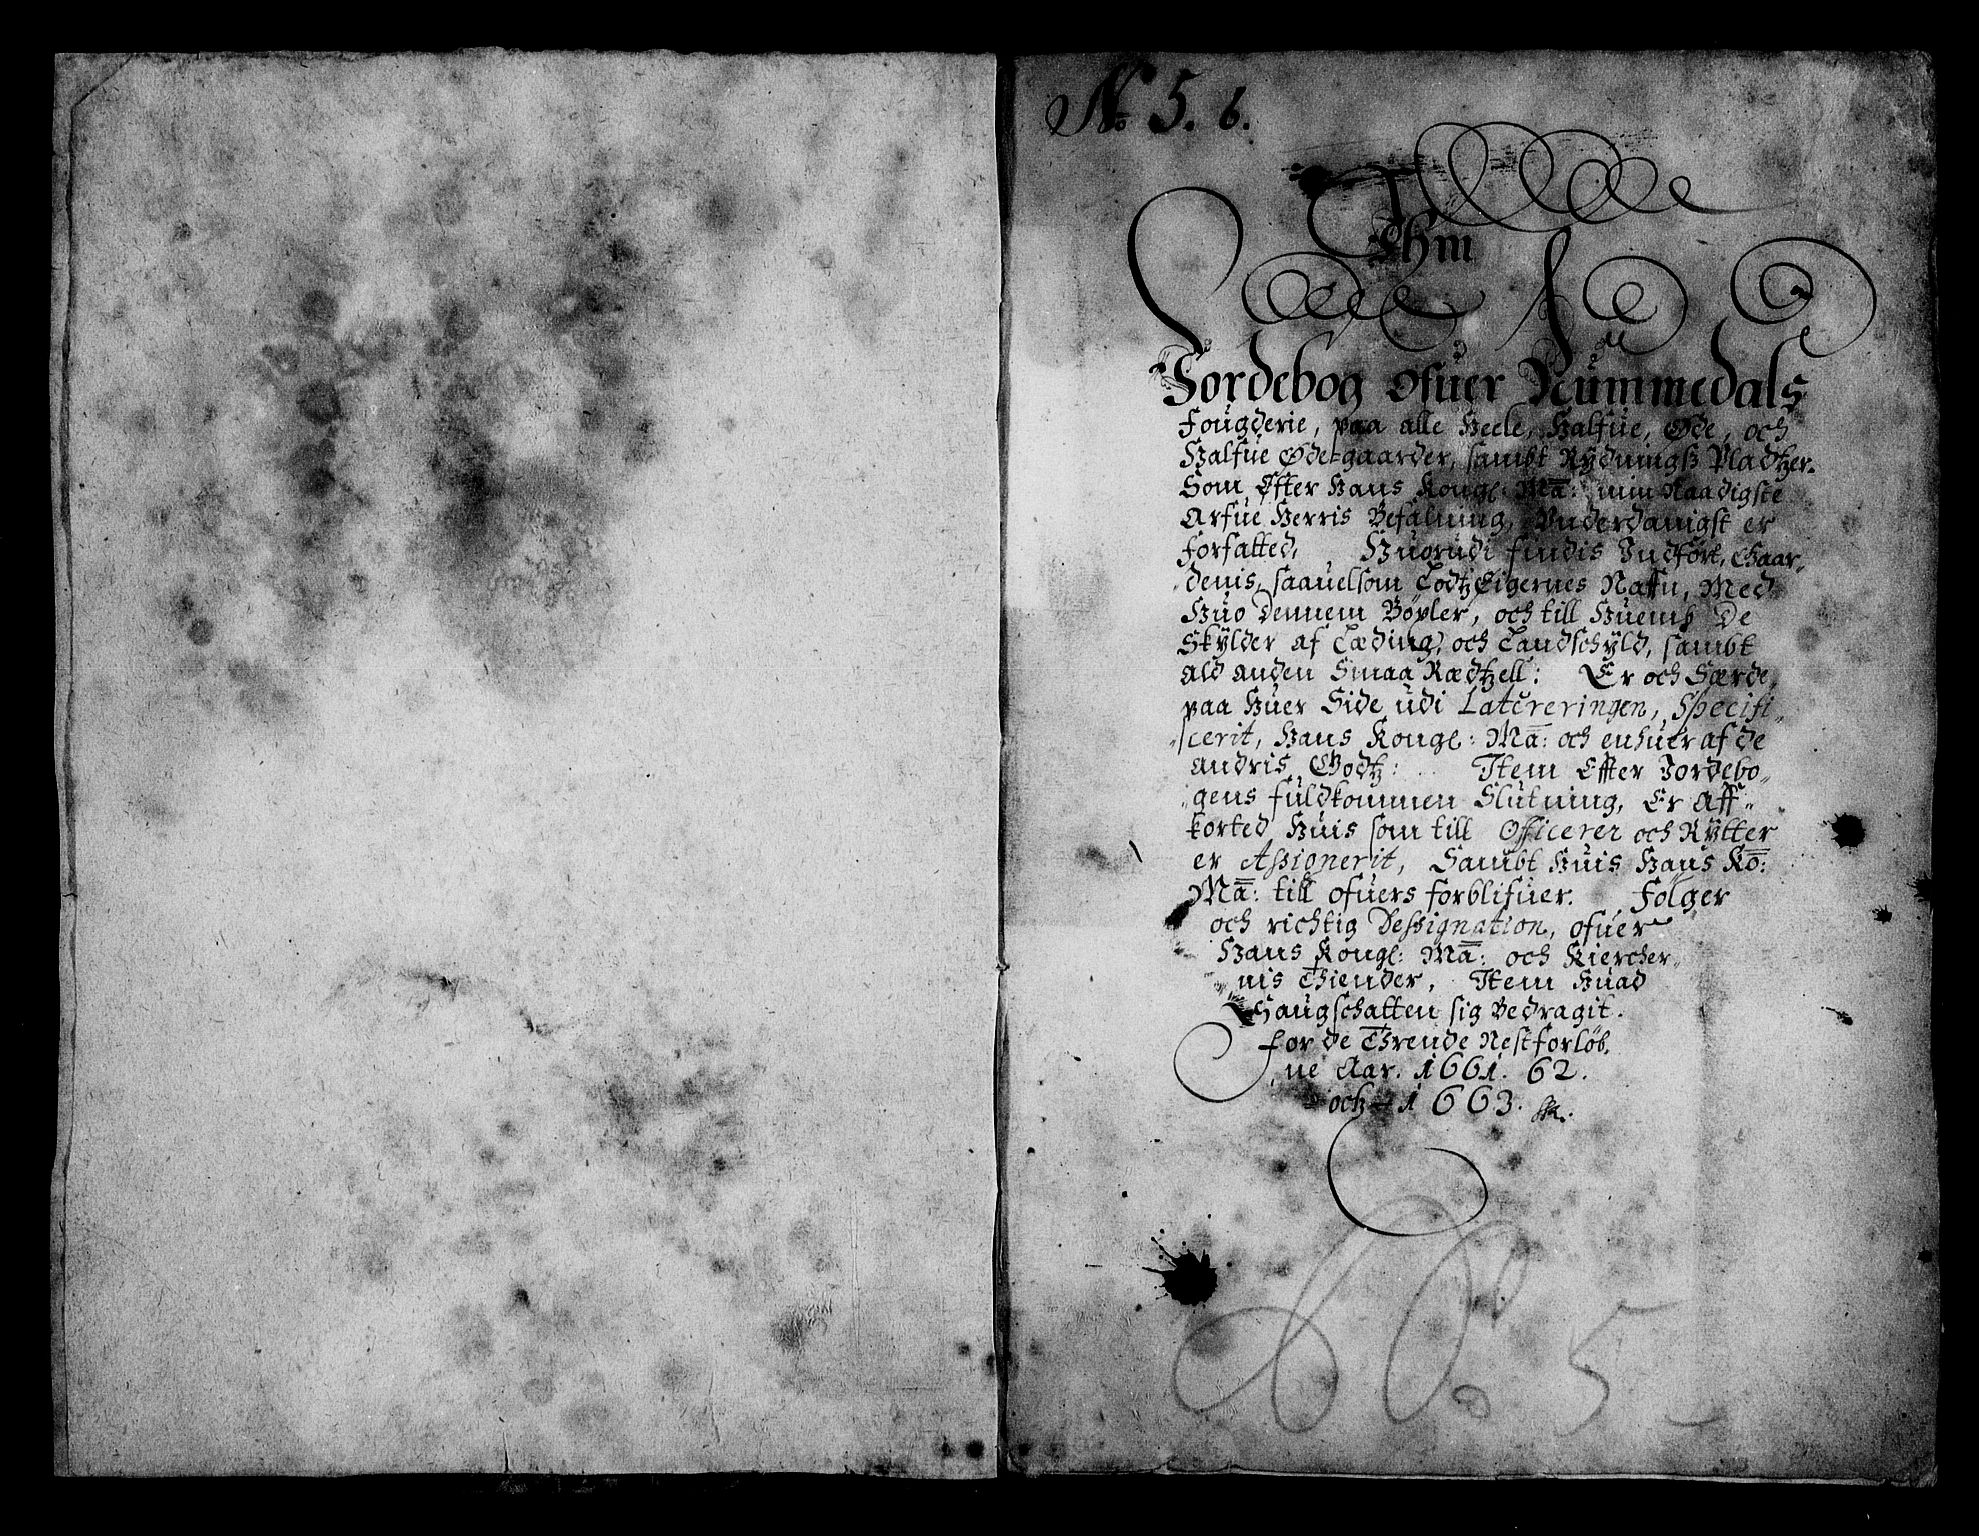 No 5. 6.
Ehm
Jordebog ofuer Nümmedals
Fougderie, paa alle Heele, Halfue, Øde, och
Halfue Øde-gaarder, sambt Rydningß Pladtzer.
Som Efter Hans Kongl: Ma: min Naadigste
Arfue Herris Befalning, Vnderdanigst er
forfatted, Huorudi findis Indfört, Gaar„
„denis, saauelsom LodtzEigernes Naffn, Med
Huo Dennem Böxler, och till Huemb De
Skylder af Læding, och Landschyld, sambt
ald anden Smaa Rædtzell: Er och Særde„
paa Huer Side udi Latereringen, Specifi„
„scerit, Hans Kongl: Ma: och enhuer af de
andris Godtz: Item Effter Jordebo„
„gens fuldkommen Slutning, Er Aff„
korted Huis som till Officerer och Rytter
er Assignerit, Sambt Huis Hans Ko:
Ma: till ofuers forblifuer. Fölger
och richtig Dessignation, ofuer
Hans Kongl: Ma: och Kiercher„
nis Thiender, Item Huad
Haugschatten sig Bedragit.
for de Thrende Nestforlöb„
ne Aar. 1661. 62.
och 1663.
No 5